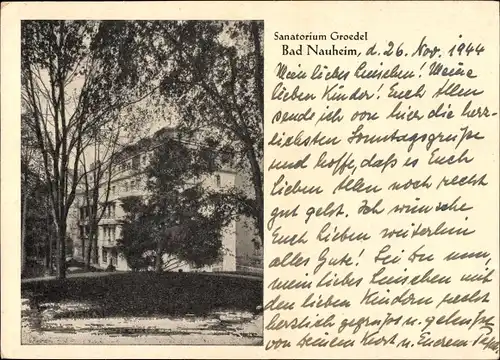 Sanatorium Groedel
Bad Nauheim, d. 26. Nov. 1944
Mein liebes Lieschen! Meine
lieben Kinder! Euch Allen
sende ich von hier die herz-
lichsten Sonntagsgrüße
und hoffe, daß es Euch
lieben Allen noch recht
gut geht. Ich wünsche
Euch Lieben weiterhin
alles Gute! Sei Du nun,
mein liebes Lieschen mit
den lieben Kindern recht
herzlich gegrüßt u. geküßt
von Deinem Kurt u. Eurem